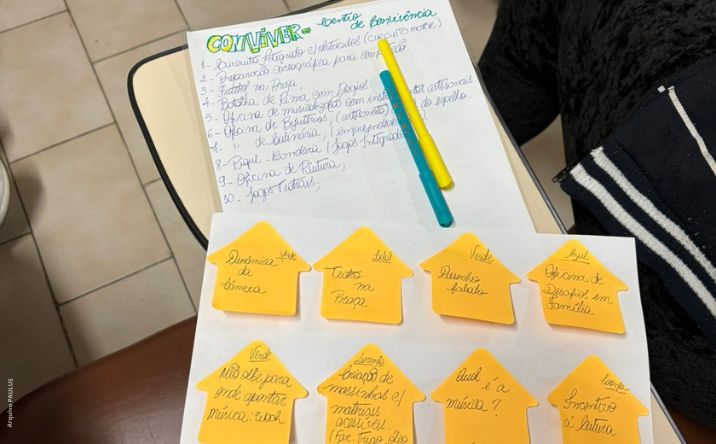 CONVIVER - Centro
de Convivência
1 - Circuito Integrado c/ obstáculos (CIRCUITO MORSE)
2 - Preparação Coreográfica para
3 - Futebol na Praça;
4 - Batalha de Rima com Elogios
5 - Oficina de musicalização com instrumentos artesanais
6 - Oficina de Bijuterias; (artesanato) do espelho.
7 - " de Culinária;
8 - Pique-Bandeira (Jogos Integrados)
9 - Oficina de Pintura;
10 - Jogos Teatrais;
Verde
Dinâmica
da
Câmera
Teatro
na
Praça
Verde
Desenho
falado
Azul
Oficina de
Desafios em
Família
Verde
Não olhe para
onde apontar
Música:
Laranja
Criação de
massinhas c/
matérias
acessíveis.
(Far. trigo, óleo
Qual é a
música?
Incentivo
à leitura
Arquivo PAULUS